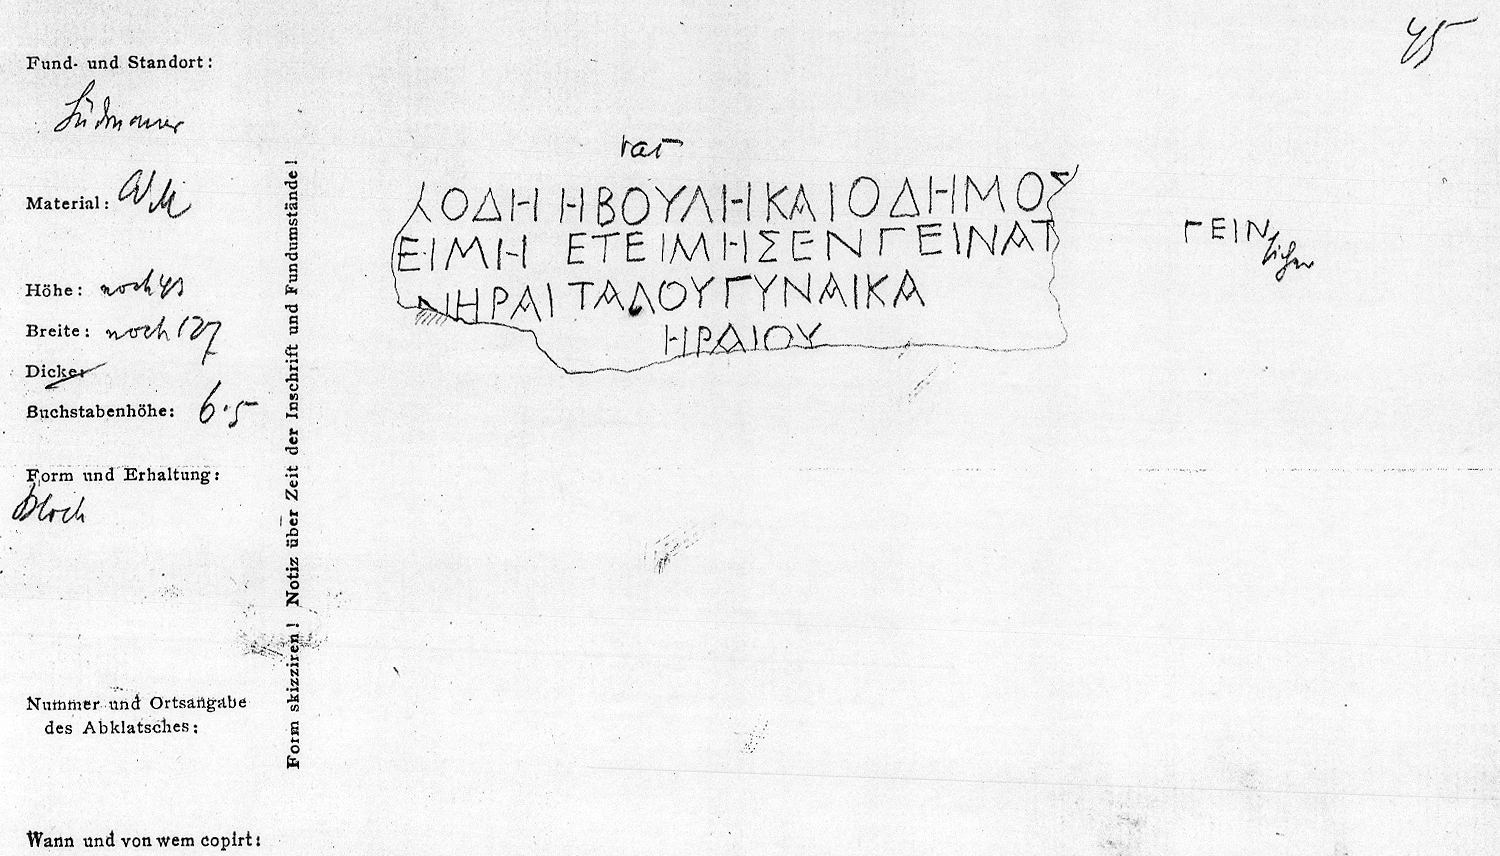 45
Fund- und Standort:
Südmauer
Material:
Höhe: noch 43
Breite: noch 127
Dicke:
Buchstabenhöhe: 6.5
Form und Erhaltung:
Block
Nummer und Ortsangabe
des Abklatsches:
Wann und von wem copirt:
Form skizziren! Notiz über Zeit der Inschrift und Fundumstände!
ΛΟΔΗ ΗΒΟΥΛΗΚΑΙΟΔΗΜΟΣ
ΕΙΜΗ ΕΤΕΙΜΗΣΕΝΓΕΙΝΑΤ
ΝΗΡΑΙΤΑΛΟΥΓΥΝΑΙΚΑ
ΗΡΑΙΟΥ
ΓΕΙΝ sicher